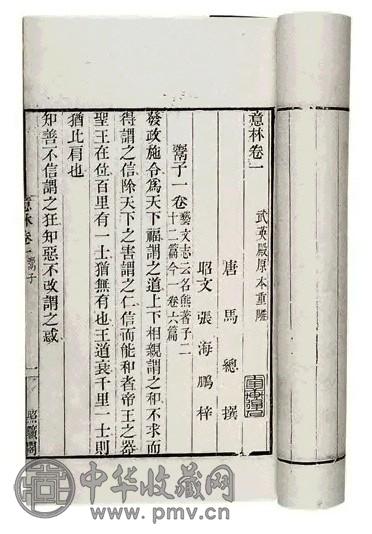 意林卷一
武英殿原本重雕
唐馬總撰
昭文張海鵬梓
鬻子一卷
藝文志云名熊著子二
十二篇今一卷六篇
發政施令爲天下福謂之道上下相親謂之和不求而
得謂之信除天下之害謂之仁信而能和者帝王之器
聖王在位百里有一士猶無有也王道衰千里一士則
猶比肩也
知善不信謂之狂知惡不改謂之惑
意林卷一
鬻子
一
照曠閣
中华收藏网
www.pmv.cn